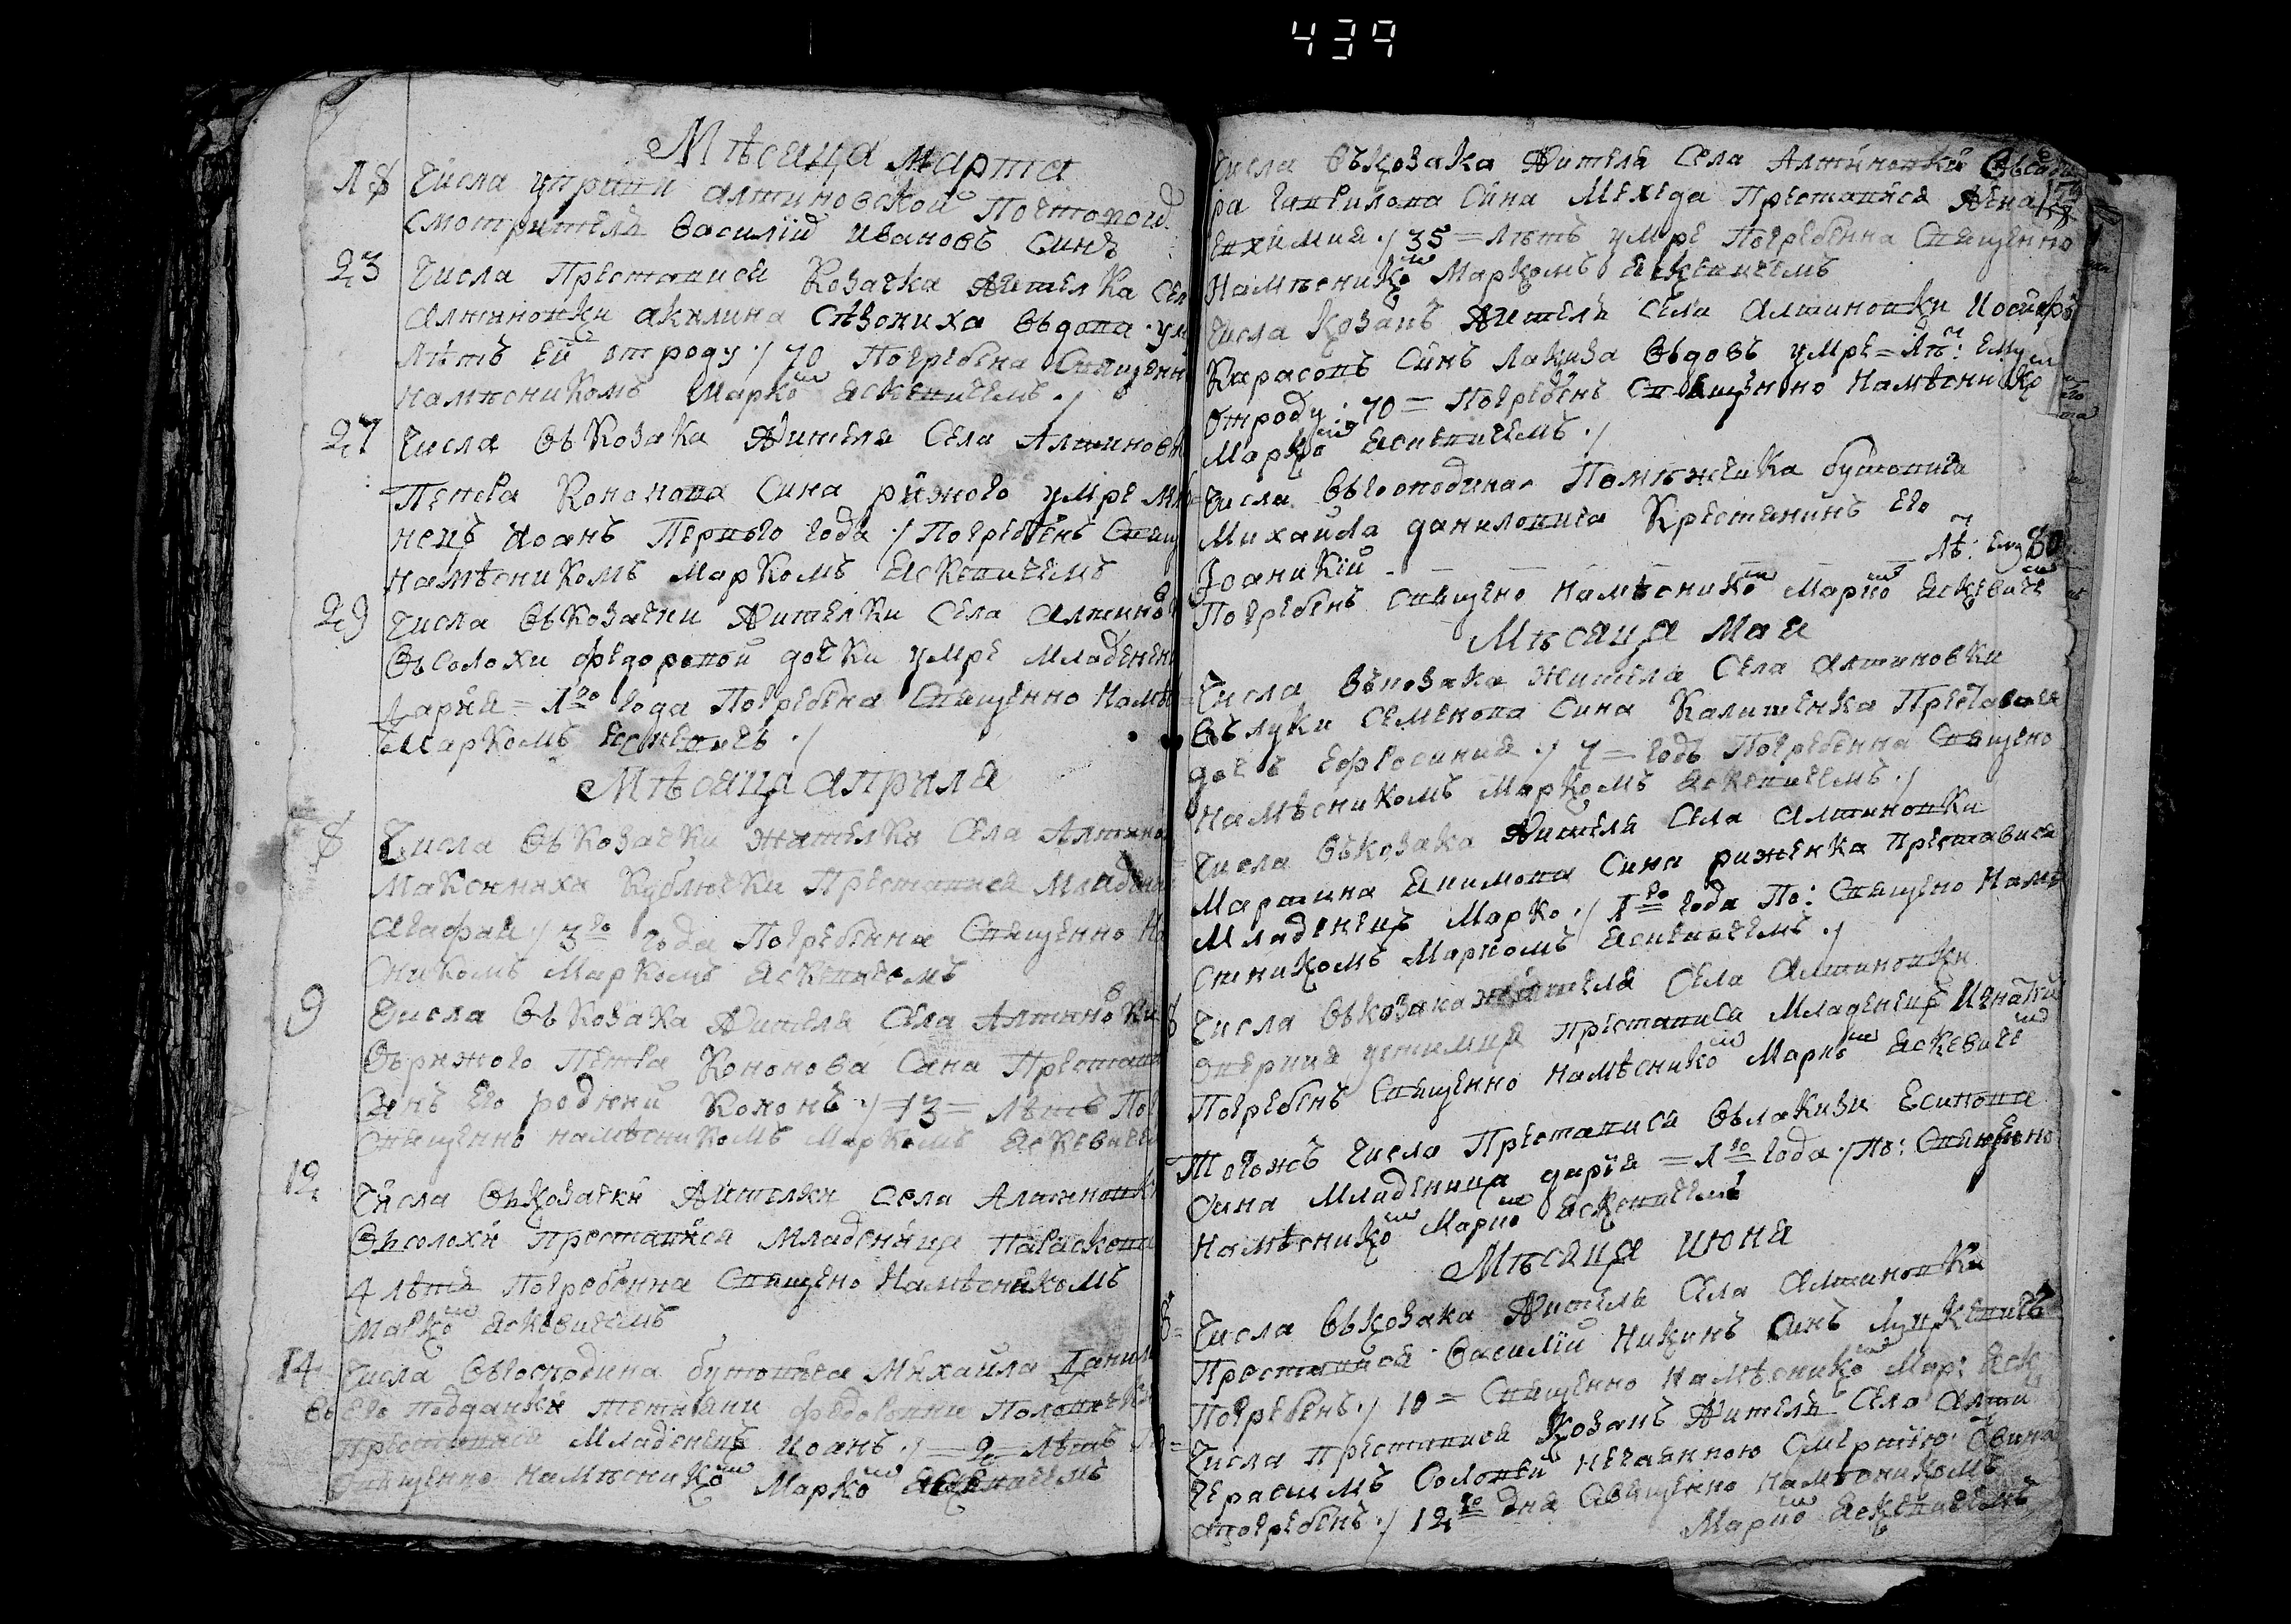 439
Мѣсяца марта
18 Числа упраши алтиновской Почтовой
смотритель Василій Ивановъ Синъ
23 Числа Преставися Козачка Жителка Сел
Алтиновки акилина Сѣзониха вдова ум
лѣтъ ей отроду ·/ 70 Погребена Священн
намѣсникомъ Марко Яскевичемъ ·/
27 Числа въ Козака Жителя Села Алтиновк
Петра Кононова Сина рижого умре мл
нецъ Иоанъ Первого года ·/ Погребенъ Свящ
намѣсникомъ Маркомъ Яскевичемъ
29 Числа въ Козачки Жителки Села Алтинов
въ Солохи Федоровой дочки умре младенец
дария = 1го года Погребена Священно Намѣ
Маркомъ Яскевичъ ·/
Мѣсяца априля
8 Числа въ Козачки жителки Села Алтино
Макснихи Кублички Преставися Младен
Агафая ·/ 3го года Погребенна Священно На
сникомъ Маркомъ Яскевичемъ
9 Числа въ Козака Жителя Села Алтиновки
въ рижого Петра Кононова Сина Престави
Синъ Его родний Кононъ ·/ =13= лѣтъ По
Священно намѣсникомъ Маркомъ Яскевиче
12 Числа въ козачки Жителки Села Алтиновк
въ солохи преставися младеница Параскови
4 лѣтъ Погребенна Священо Намѣсникомъ
Марко Яскевичемъ
14 Числа въ господина бутовича Михайла Данил
въ Его подданки тетяни федоровни Половички
преставися Младенецъ Иоанъ ·/ =2= лѣтъ
Священно Намѣснико Марко Яскевичемъ
Числа въ козака Жителя Села Алтиновки
ра Гаврилова Сина Мехеда Преставися Жена
Евхимия ·/ 35 = лѣтъ умре Погребенна Священно
Намѣснико Маркомъ Яскевичемъ
Числа Козакъ Житель Села Алтиновки Иосифъ
Карасовъ Синъ Лакиза вдовъ умре = лѣ: Ему
отроду: 70 = Погребенъ Священно Намѣснико
Марко Яскевичемъ ·/
Числа въ господина Помѣжчика бутовича
Михайла даниловича Крестянинъ Его
Іоаникій - - - лѣ: Ему 80
Погребенъ Священо Намѣснико Марко Яскевиче
Мѣсяца Мая
Числа въ козака жителя Села Алтиновки
въ луки Семенова Сина Калитенка Преставися
дочъ Ефросиния ·/ 7 = годъ Погребенна Священо
Намѣсникомъ Маркомъ Яскевичемъ ·/
Числа въ козака Жителя Села Алтиновки
Мартина Якимова Сина риженка Преставися
Младенецъ Марко ·/ 1го года По: Священо Намѣ
стникомъ Маркомъ Яскевичемъ ·/
Числа въ козака жителя Села Алтиновки
преставися младенецъ Игнатий
Погребенъ Священно намѣснико Марко Яскевиче
Тогожъ числа Преставися въ лакизи Есипова
Сина Младеница дария = 1го года ·/ По: Священно
Намѣснико Марко Яскевичемъ
Мѣсяца июня
Числа въ козака Жителя Села Алтиновки
Преставися Василій Никинъ Синъ
Погребенъ ·/ 10 = Священно Намѣснико Мар: Яск
Числа преставися Козакъ Житель Села Алти
Герасимъ Соловей нечаянною смертию
погребенъ ·/ 12го дня Священно Намѣсникомъ
Марко Яскевичемъ